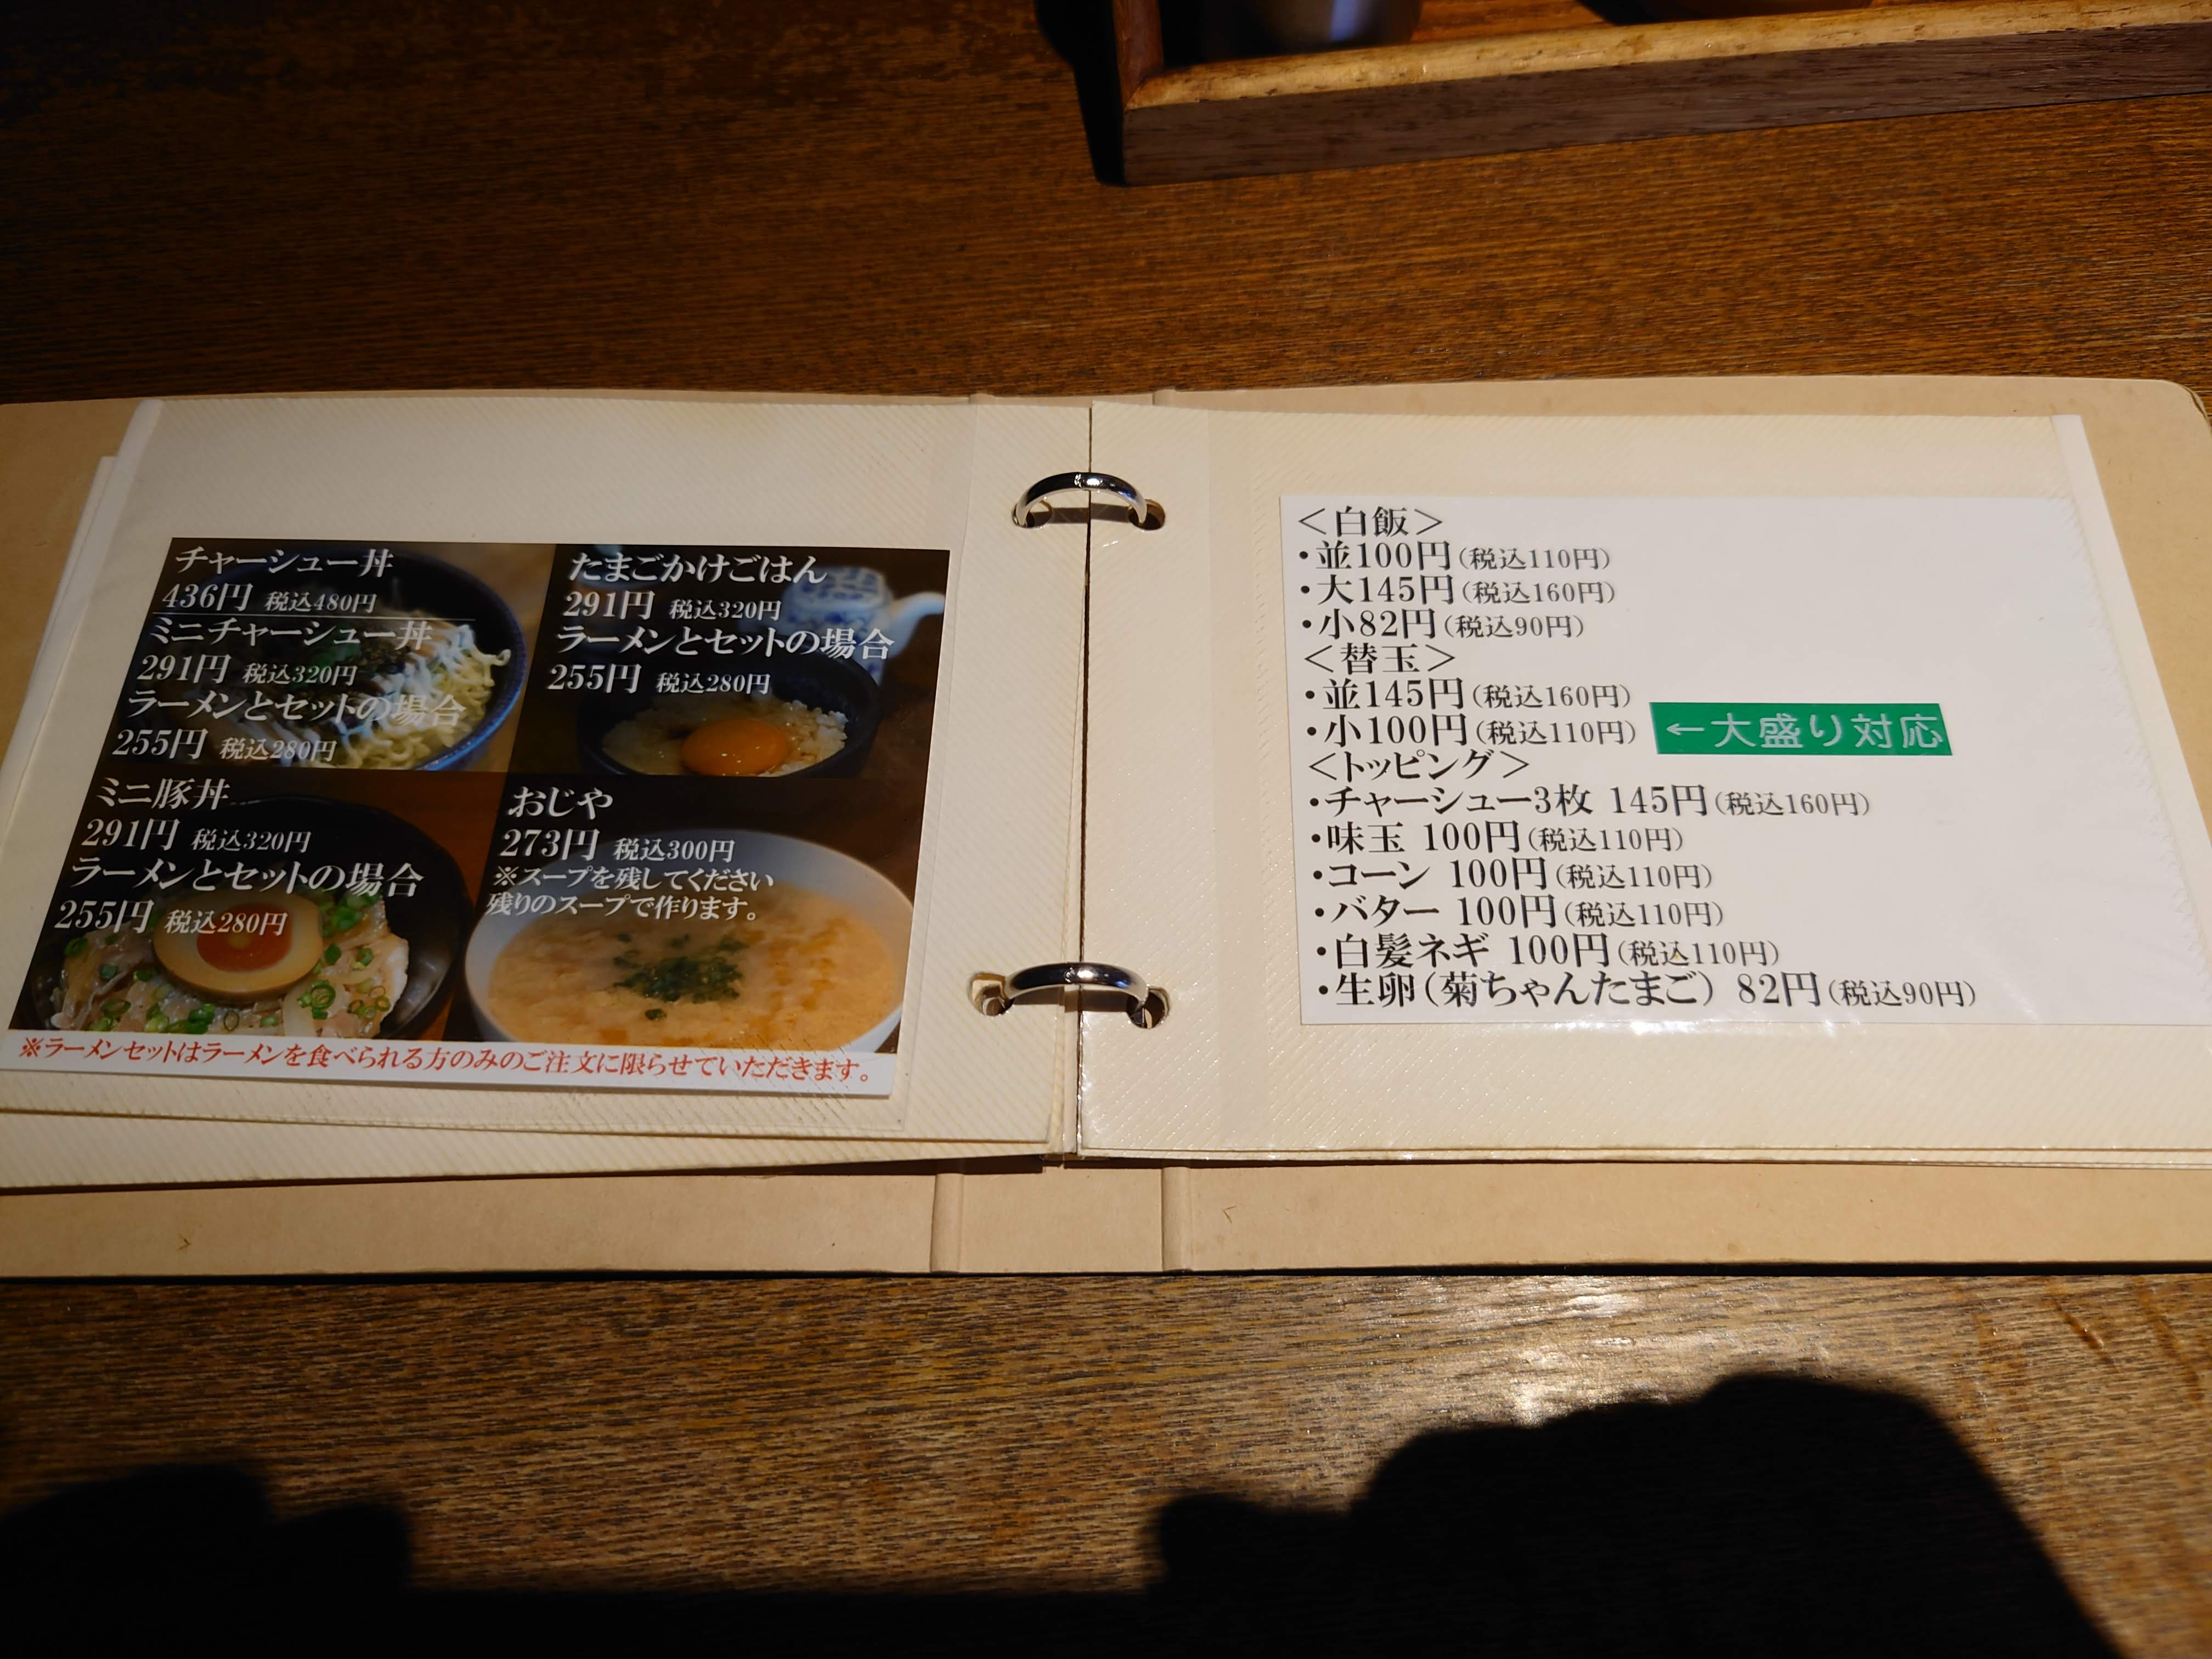 チャーシュー丼
436円 税込480円
ミニチャーシュー丼
291円 税込320円
ラーメンとセットの場合
255円 税込280円
たまごかけごはん
291円 税込320円
ラーメンとセットの場合
255円 税込280円
ミニ豚丼
291円 税込320円
ラーメンとセットの場合
255円 税込280円
おじや
273円 税込300円
※スープを残してください
残りのスープで作ります。
※ラーメンセットはラーメンを食べられる方のみのご注文に限らせていただきます。
＜白飯＞
・並100円(税込110円)
・大145円(税込160円)
・小82円(税込90円)
＜替玉＞
・並145円(税込160円)
・小100円(税込110円) ←大盛り対応
＜トッピング＞
・チャーシュー3枚 145円(税込160円)
・味玉 100円(税込110円)
・コーン 100円(税込110円)
・バター 100円(税込110円)
・白髪ネギ 100円(税込110円)
・生卵(菊ちゃんたまご) 82円(税込90円)